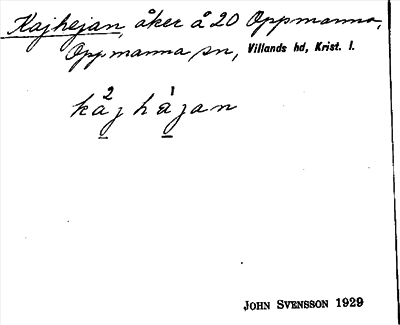 Kajhejan, åker å 20 Oppmanna,
Oppmanna sn, Villands hd, Krist. l.
kåj hàjan
JOHN SVENSSON 1929